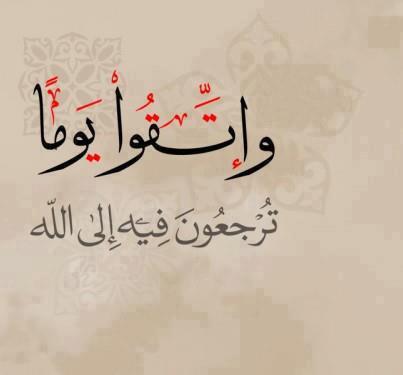 وإتَّقُواْ يَوماً
تُرْجعُونَ فِيْهِ إِلىٰ اللّه